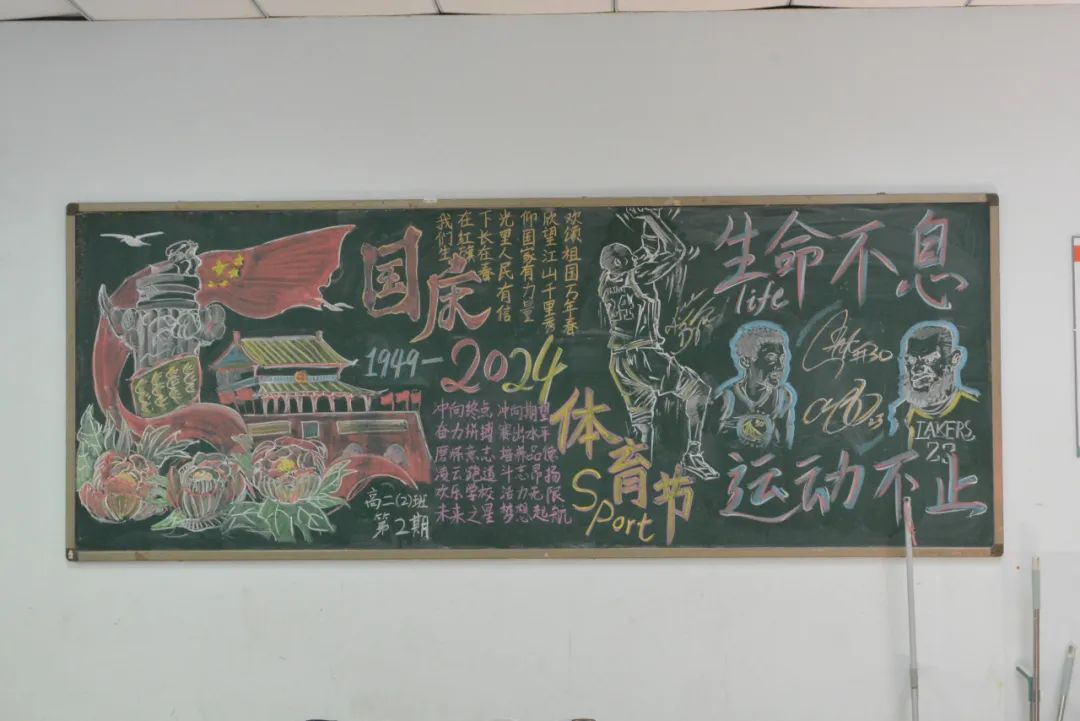 国庆
1949-2024
我们生
在红旗
下长在春
光里人民有信
仰国家有力量
欣望江山千里秀
欢颂祖国万年春
冲向终点 冲向期望
奋力拼搏 赛出水平
意志 培养品德
凌云跑道 斗志昂扬
欢乐学校 活力无限
未来之星 梦想起航
高二(2)班
第2期
体育节
Sport
生命不息
life
#30
LAKERS
23
运动不止